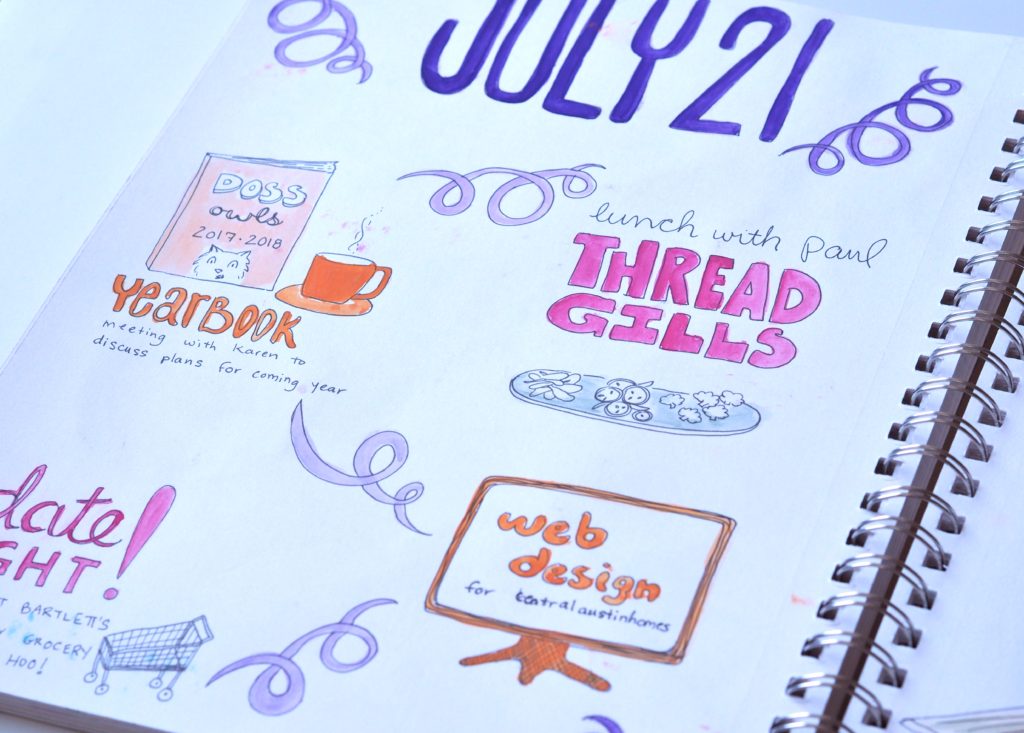 JULY 21
DOSS
owls
2017·2018
YearBOOK
meeting with Karen to
discuss plans for coming year
lunch with Paul
THREAD
GILLS
date
GHT!
BARTLETT'S
GROCERY
HOO!
web
design
for centralaustinhomes